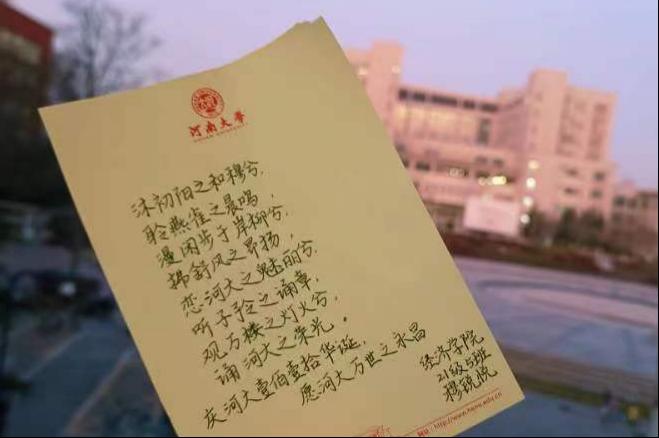 河南大学
沐初阳之和穆兮，
聆燕雀之晨鸣，
漫闲步于岸柳兮，
拂舒风之昂扬，
恋河大之魅丽兮，
听子衿之诵章，
观万楼之灯火兮，
诵河大之荣光。
庆河大壹佰壹拾华诞，
愿河大万世之永昌
经济学院
21级5班
穆锐悦
http://www.henu.edu.cn